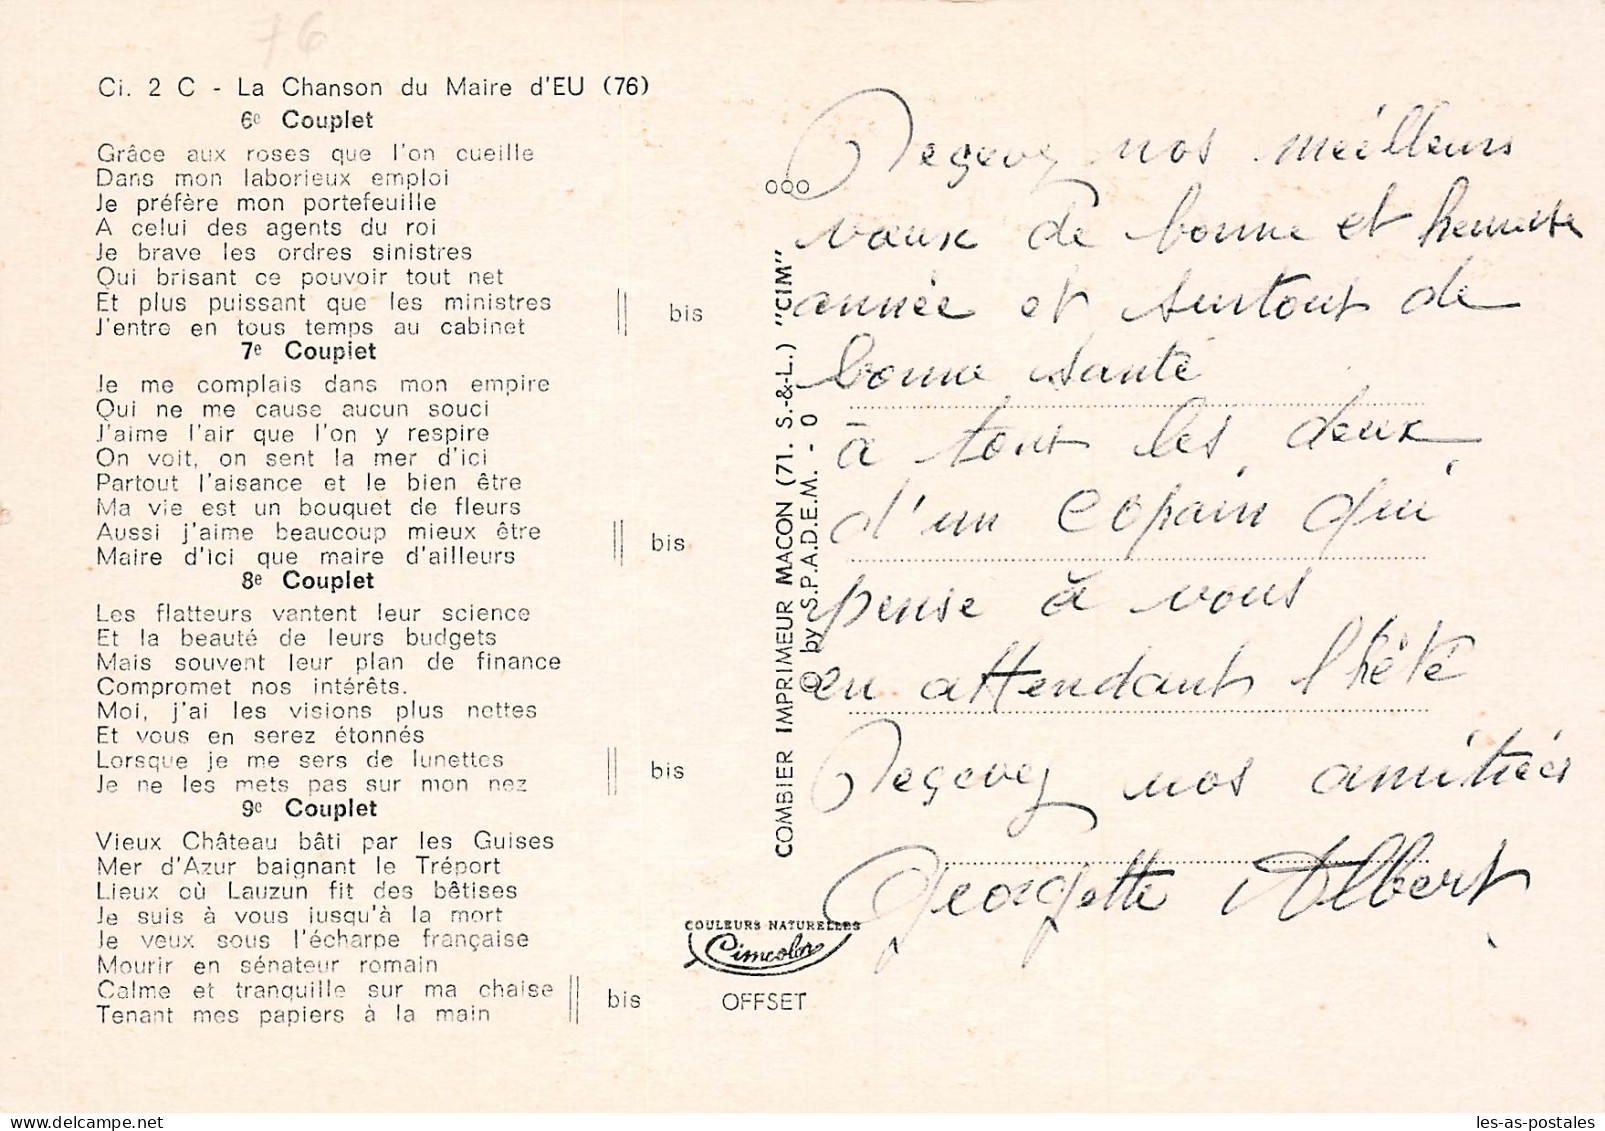 76
Ci. 2 C - La Chanson du Maire d'EU (76)
6e Couplet
Grâce aux roses que l'on cueille
Dans mon laborieux emploi
Je préfère mon portefeuille
A celui des agents du roi
Je brave les ordres sinistres
Qui brisant ce pouvoir tout net
Et plus puissant que les ministres
J'entre en tous temps au cabinet
bis
7e Couplet
Je me complais dans mon empire
Qui ne me cause aucun souci
J'aime l'air que l'on y respire
On voit, on sent la mer d'ici
Partout l'aisance et le bien être
Ma vie est un bouquet de fleurs
Aussi j'aime beaucoup mieux être
Maire d'ici que maire d'ailleurs
bis
8e Couplet
Les flatteurs vantent leur science
Et la beauté de leurs budgets
Mais souvent leur plan de finance
Compromet nos intérêts.
Moi, j'ai les visions plus nettes
Et vous en serez étonnés
Lorsque je me sers de lunettes
Je ne les mets pas sur mon nez
bis
9e Couplet
Vieux Château bâti par les Guises
Mer d'Azur baignant le Tréport
Lieux où Lauzun fit des bêtises
Je suis à vous jusqu'à la mort
Je veux sous l'écharpe française
Mourir en sénateur romain
Calme et tranquille sur ma chaise
Tenant mes papiers à la main
bis
COMBIER IMPRIMEUR MACON (71. S.-&-L.) "CIM"
© by S.P.A.D.E.M. - 0
000
COULEURS NATURELLES
Cimcolor
OFFSET
Reçevez nos meilleurs
vœux de bonne et heureuse
année et surtout de
bonne santé
à tout les deux
d'un copain qui
pense à vous
en attendant l'hété
Reçevez nos amitiées
Georgette Albert
les-as-postales